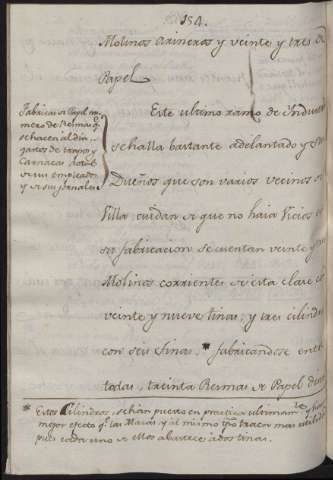 154.
Molinos arineros y veinte y tres de
Papel
Este ultimo ramo de Indust
se halla bastante adelantado y
Dueños que son varios vecinos
Villa, cuidan de que no haia Vicios
su fabricacion se cuentan veinte y
Molinos corrientes de esta clase co
veinte y nueve tinas, y tres cilindros
con seis tinas. * fabricandose entre
todas, treinta Remas de Papel
Fabricas de Papel nu
mero de Remas q.
se hacen al dia
gastos de trapos y
Carnaza
de sus empleados
y de sus jornales
* Estos Cilindros, se han puesto en practica ultimam.te y hacen
mejor efecto q.e las Mazas y al mismo tpo traen mas utilidad
pues cada uno de ellos abastece à dos tinas.